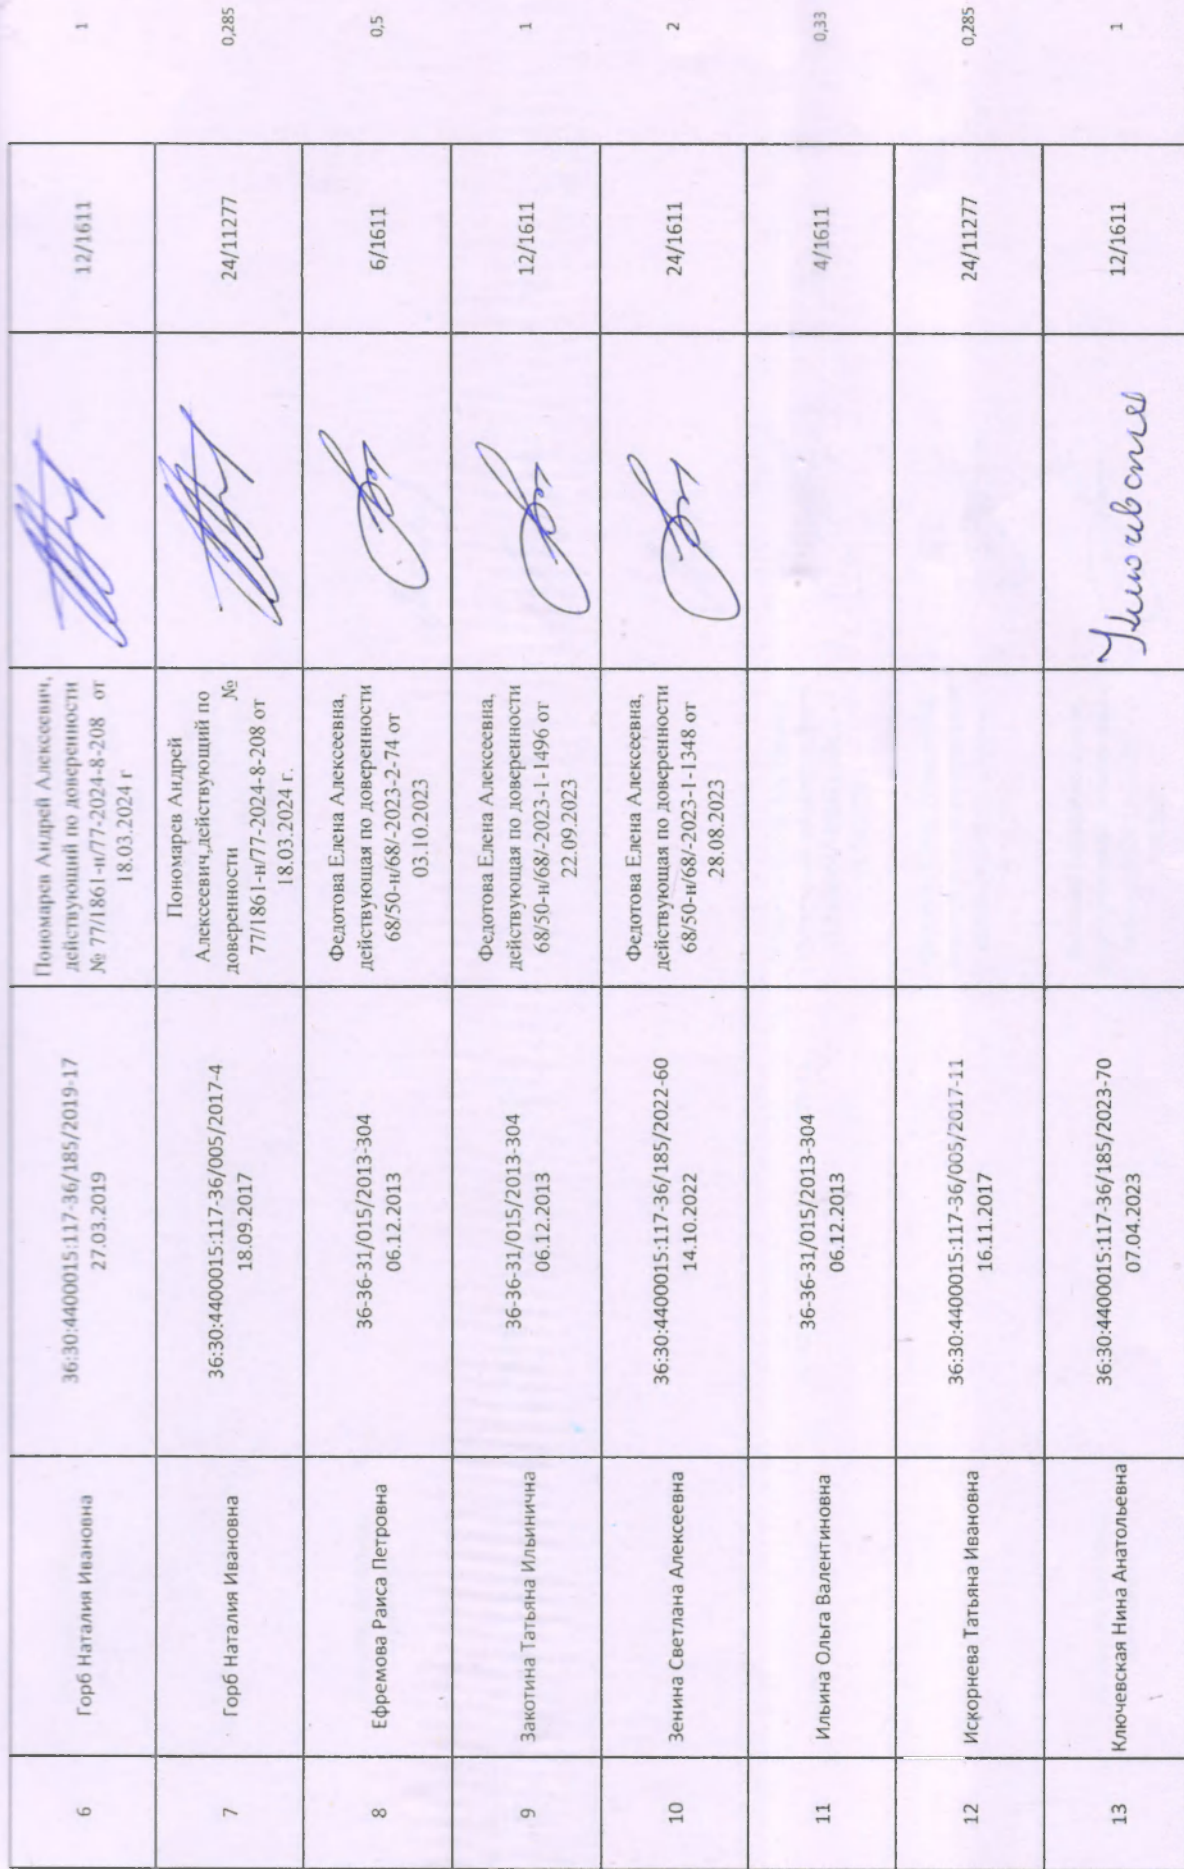 6
Горб Наталия Ивановна
36:30:4400015:117-36/185/2019-17
27.03.2019
Пономарев Андрей Алексеевич,
действующий по доверенности
№ 77/1861-н/77-2024-8-208 от
18.03.2024 г
12/1611
1
7
Горб Наталия Ивановна
36:30:4400015:117-36/005/2017-4
18.09.2017
Пономарев Андрей
Алексеевич,действующий по
доверенности №
77/1861-н/77-2024-8-208 от
18.03.2024 г.
24/11277
0,285
8
Ефремова Раиса Петровна
36-36-31/015/2013-304
06.12.2013
Федотова Елена Алексеевна,
действующая по доверенности
68/50-н/68/-2023-2-74 от
03.10.2023
6/1611
0,5
9
Закотина Татьяна Ильинична
36-36-31/015/2013-304
06.12.2013
Федотова Елена Алексеевна,
действующая по доверенности
68/50-н/68/-2023-1-1496 от
22.09.2023
12/1611
1
10
Зенина Светлана Алексеевна
36:30:4400015:117-36/185/2022-60
14.10.2022
Федотова Елена Алексеевна,
действующая по доверенности
68/50-н/68/-2023-1-1348 от
28.08.2023
24/1611
2
11
Ильина Ольга Валентиновна
36-36-31/015/2013-304
06.12.2013
4/1611
0,33
12
Искорнева Татьяна Ивановна
36:30:4400015:117-36/005/2017-11
16.11.2017
24/11277
0,285
13
Ключевская Нина Анатольевна
36:30:4400015:117-36/185/2023-70
07.04.2023
12/1611
1